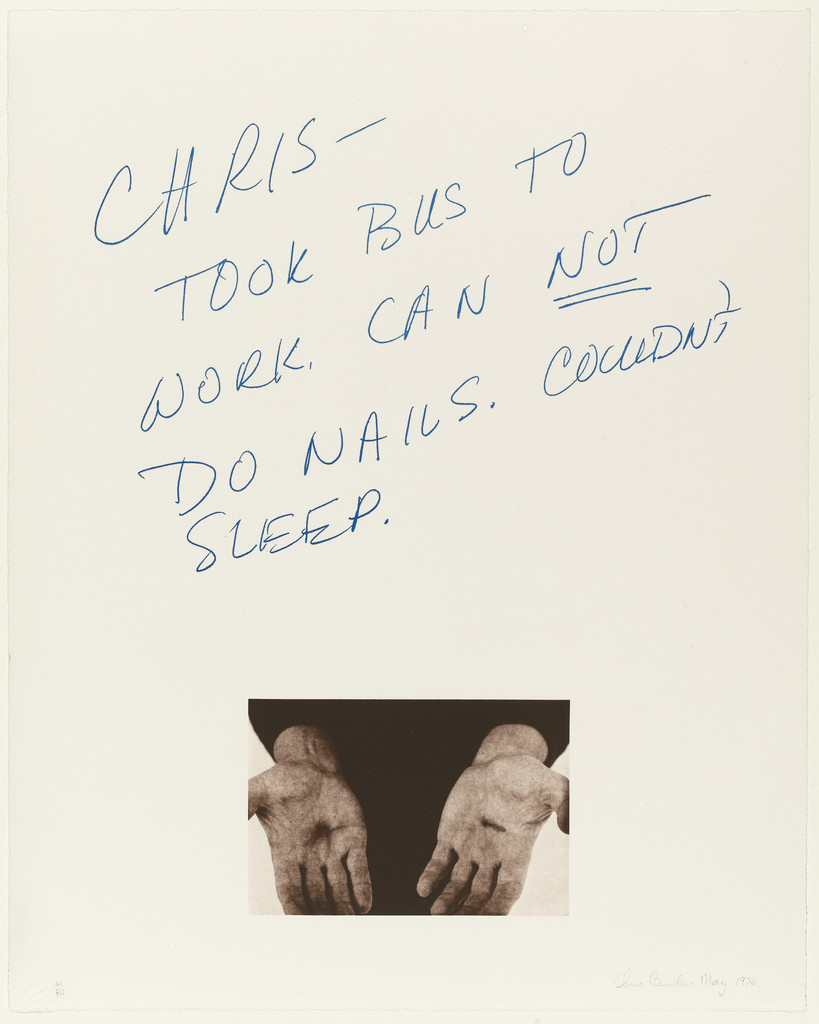 CHRIS—
TOOK BUS TO
WORK. CAN NOT
DO NAILS. COULDN'T
SLEEP.
Chris Burden May 1976